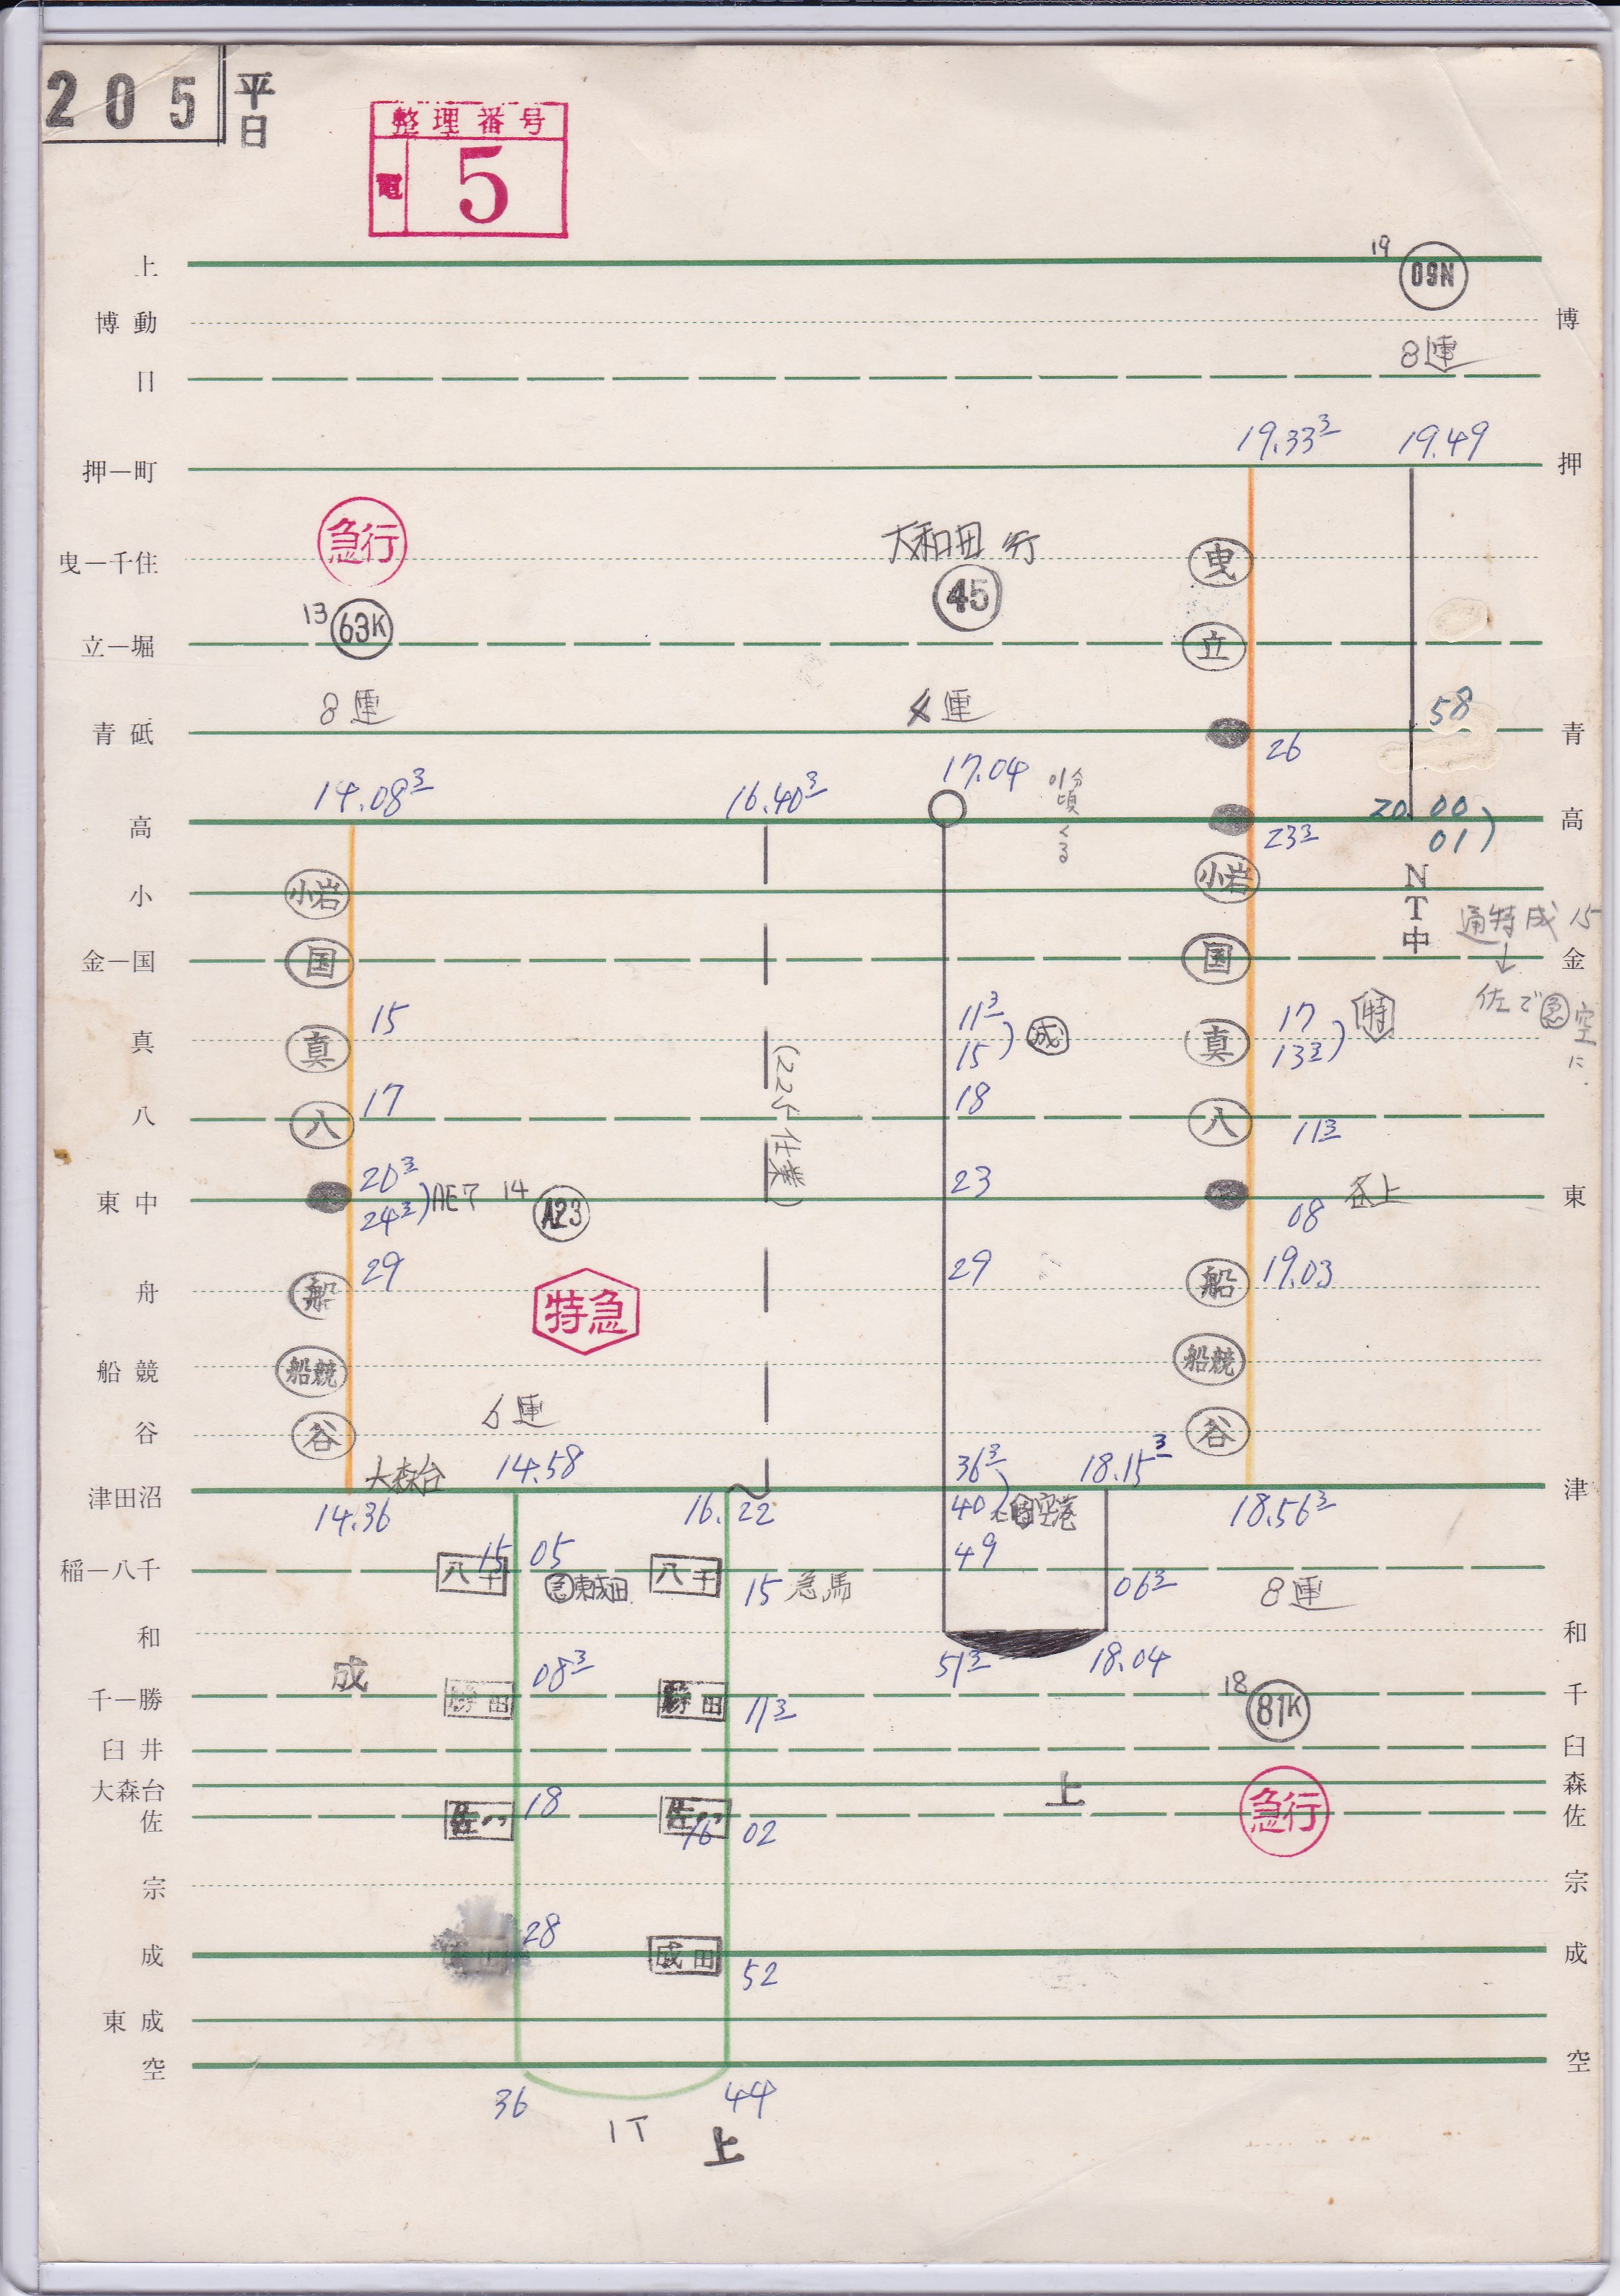 205 平日
整理番号
電 5
上
19 09N
博動 博
8運
日
19.33³ 19.49
押ー町 押
急行
大和田行
曳ー千住 曳
45
13 63K
立ー堀 立
8運
運
58
青砥 青
26
17.04
14.08³ 16.40³
01分頃くる
20.00
高 高
23³ 01)
小岩 小岩
小
NT中
通特成 15
↓
佐で急空に
金ー国 国 国 金
15 11³ 17 特
真 真 15) 成 真 13³)
17 18
八 八 八 11³
(225仕業)
20³ 23
東中 24³) AE7 14 A23 東
08
29 29 19.03
舟 船 船
特急
船競 船競 船競
6運
谷 谷 谷
大森台 14.58 36³ 18.15³
津田沼 津
14.36 16.22 40 特空港 18.56³
15 05 49
稲ー八千 八千 八千
急東成田 15 急馬 06³ 8運
和 和
成 08³ 51³ 18.04
千ー勝 勝田 勝田 11³ 18 81K 千
臼井 臼
大森台 上 急行 森
18
佐 佐 佐 佐
16 02
宗 宗
28
成 成田 成
52
東成
空 空
36 44
1T 上